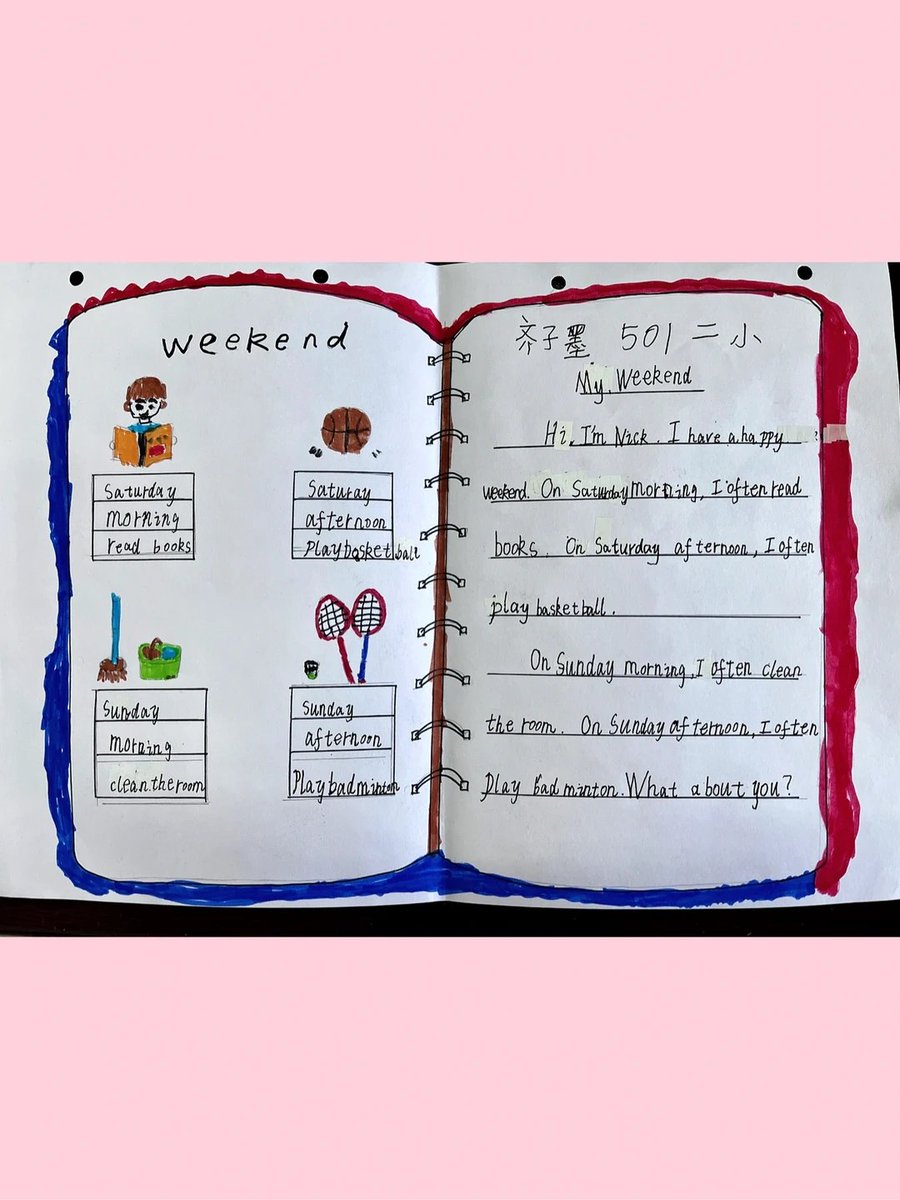 weekend
Saturday
morning
read books
Saturay
afternoon
Playbasketball
Sunday
morning
clean.the room
Sunday
afternoon
Playbadminton
齐子墨 501 二小
My. Weekend
Hi, I'm Nick. I have a happy
weekend. On Saturday morning, I often read
books. On Saturday afternoon, I often
play basketball.
On Sunday morning, I often clean
the room. On Sunday afternoon, I often
Play badminton. What about you?